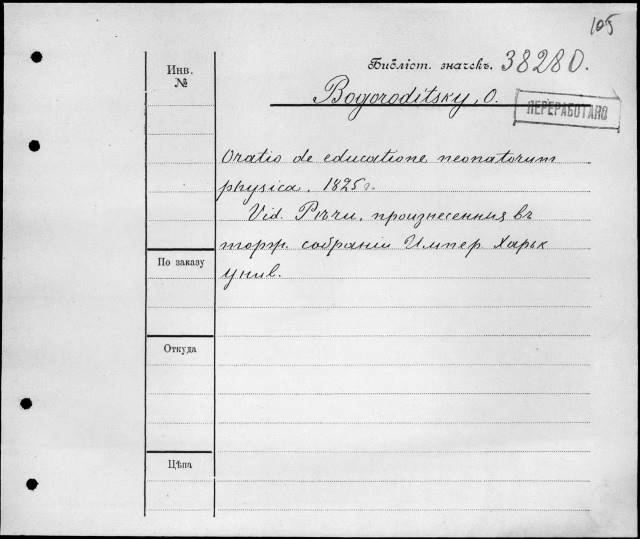 105
Инв.
№
Библіот. значекъ. 38280.
Bogoroditsky, O.
ПЕРЕРАБОТАНО
Oratio de educatione neonatorum
physica. 1825 г.
Vid. Рѣчи, произнесенныя въ
торж. собраніи Импер Харьк
Унив.
По заказу
Откуда
Цѣна